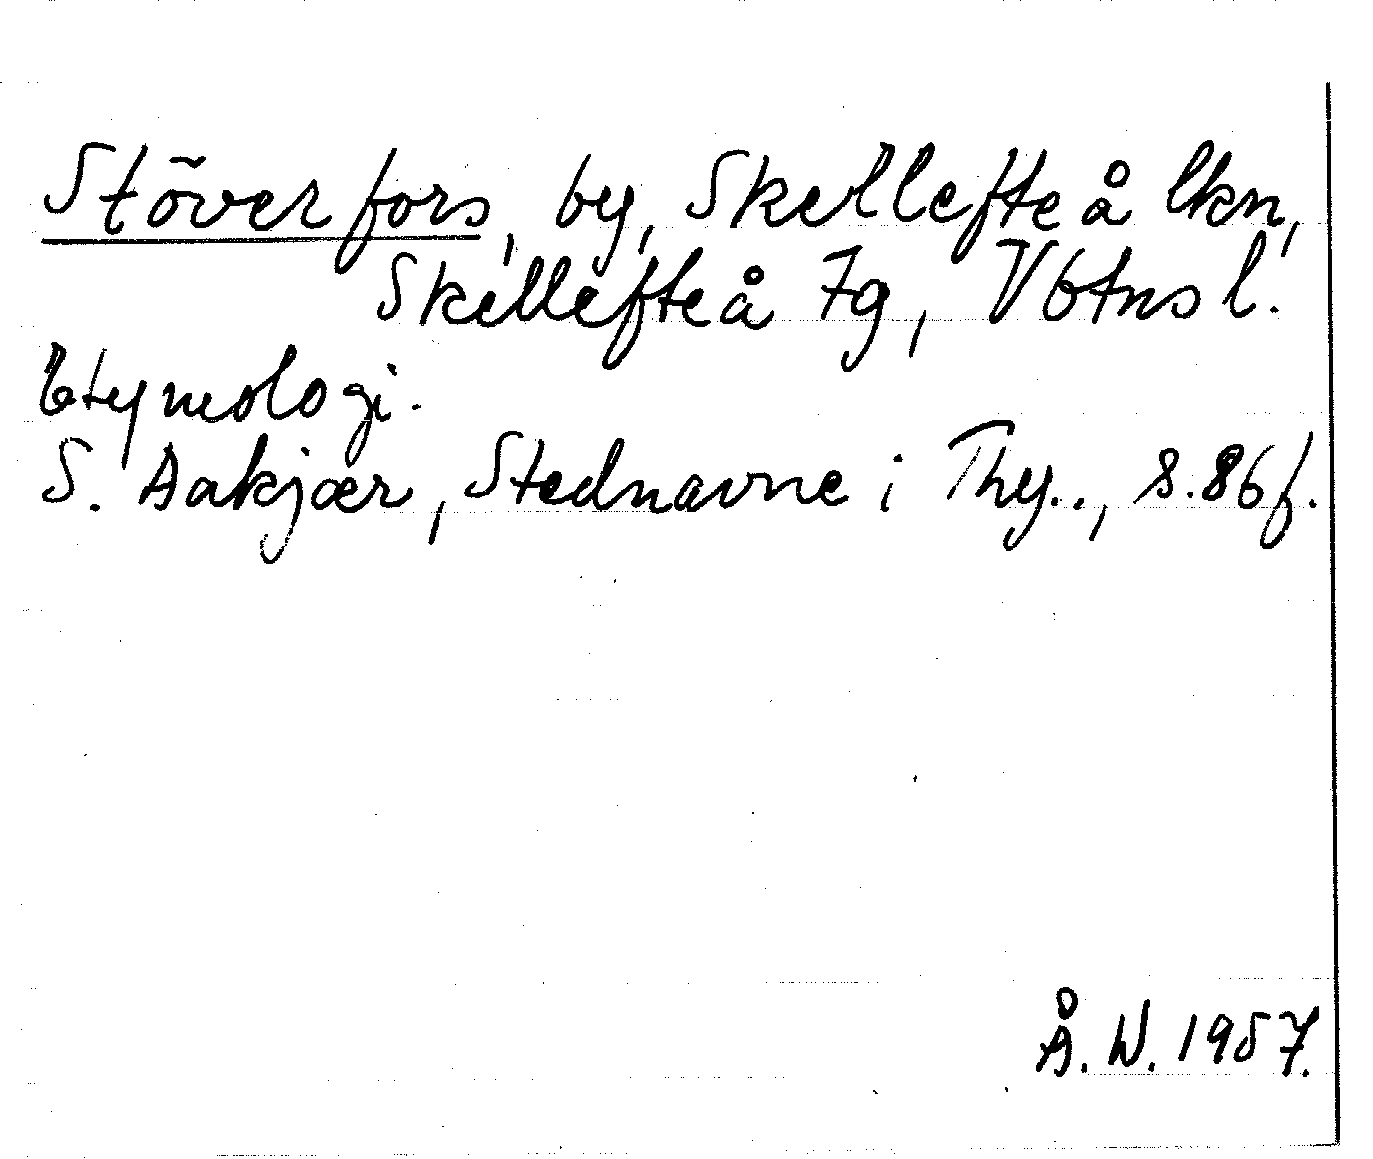 Stöverfors, by, Skellefteå lkn,
Skellefteå Tg, Vbtns l.
Etymologi.
S. Aakjær, Stednavne i Thy.., s. 86f.
Å. W. 1957.